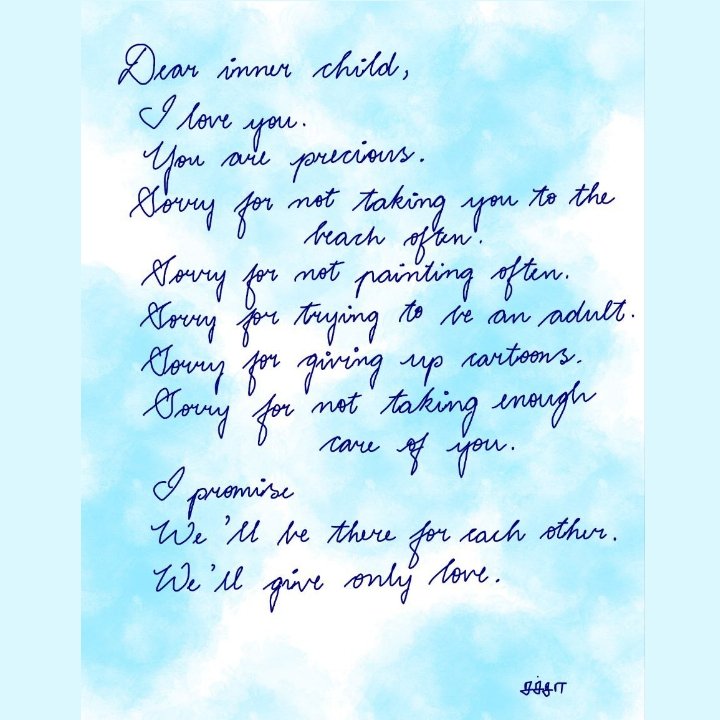 Dear inner child,
I love you.
You are precious.
Sorry for not taking you to the
beach often.
Sorry for not painting often.
Sorry for trying to be an adult.
Sorry for giving up cartoons.
Sorry for not taking enough
care of you.
I promise
We'll be there for each other.
We'll give only love.